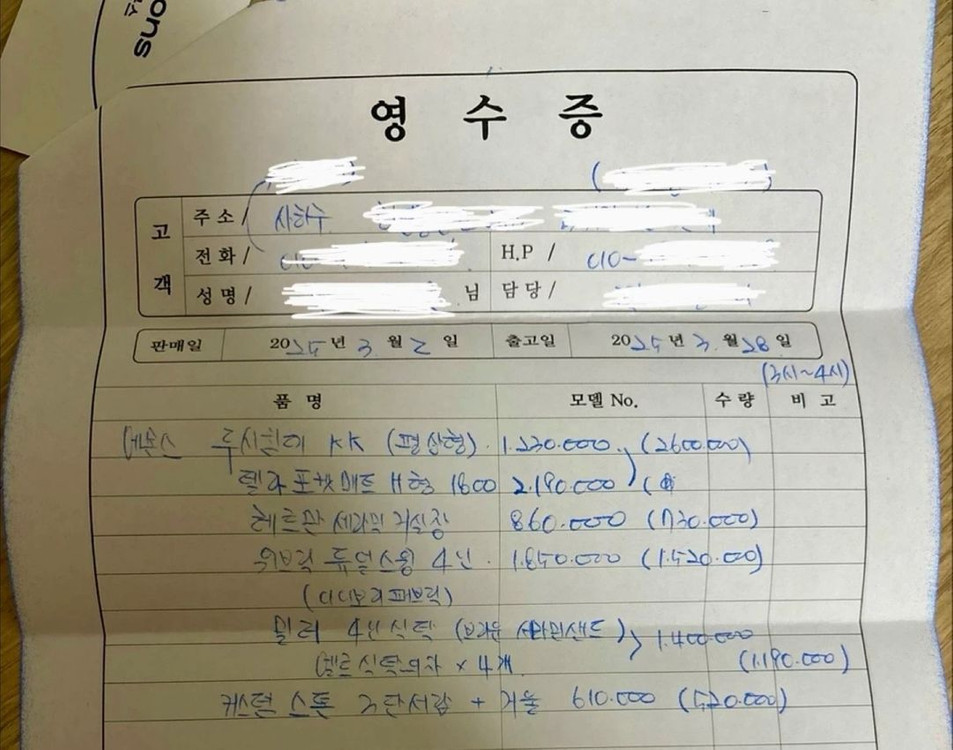 ons
영 수 증
고 객
주소/ 사하구
전화/ 010- H.P / 010-
성명/ 님 담당/
판매일 2025년 3월 2일 출고일 2025년 3월 28일
(3시~4시)
품 명 모델 No. 수량 비고
데온스 루시헌터 KK (평상형). 1.230.000 (2600.000)
텔라 포켓매트 H형 1800 2.190.000 (
헤르만 세라믹 거실장 860.000 (730.000)
듀얼스윙 4인. 1.850.000 (1.570.000)
밀러 4인식탁 (브라운 세라믹샌드) 1.400.000
벨르 식탁의자 × 4개. (1.190.000)
캐스털 스톤 3단서랍 + 거울 610.000 (520.000)